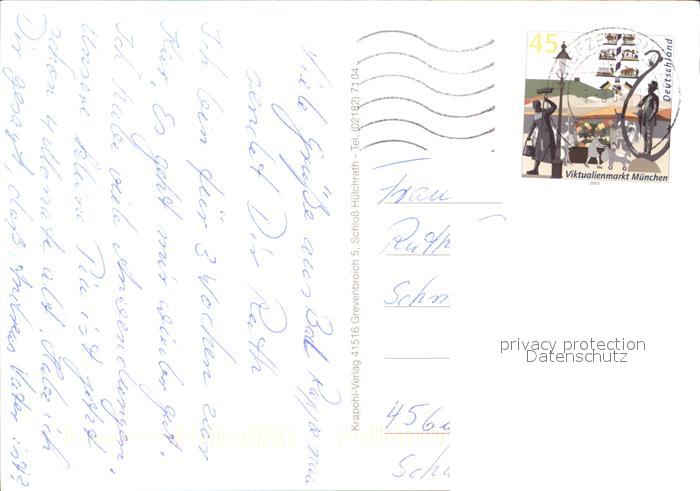 Viele Grüße aus Bad Rappenau
sendet Dir Ruth
Ich bin für 3 Wochen zur
Kur. Es geht mir wieder gut.
Ich habe viele Anwendungen.
Unsere kleine Pia ist jetzt
schon 4 Monate alt. Habe ich
Dir gesagt, daß Andreas Vater ist?
Krapohl-Verlag 41516 Grevenbroich 5, Schloß Hülchrath - Tel. (02182) 7104
45
Deutschland
Viktualienmarkt München
2003
BRIEFZENTRUM
Frau
Ruth
Schm
456
Sch
privacy protection
Datenschutz